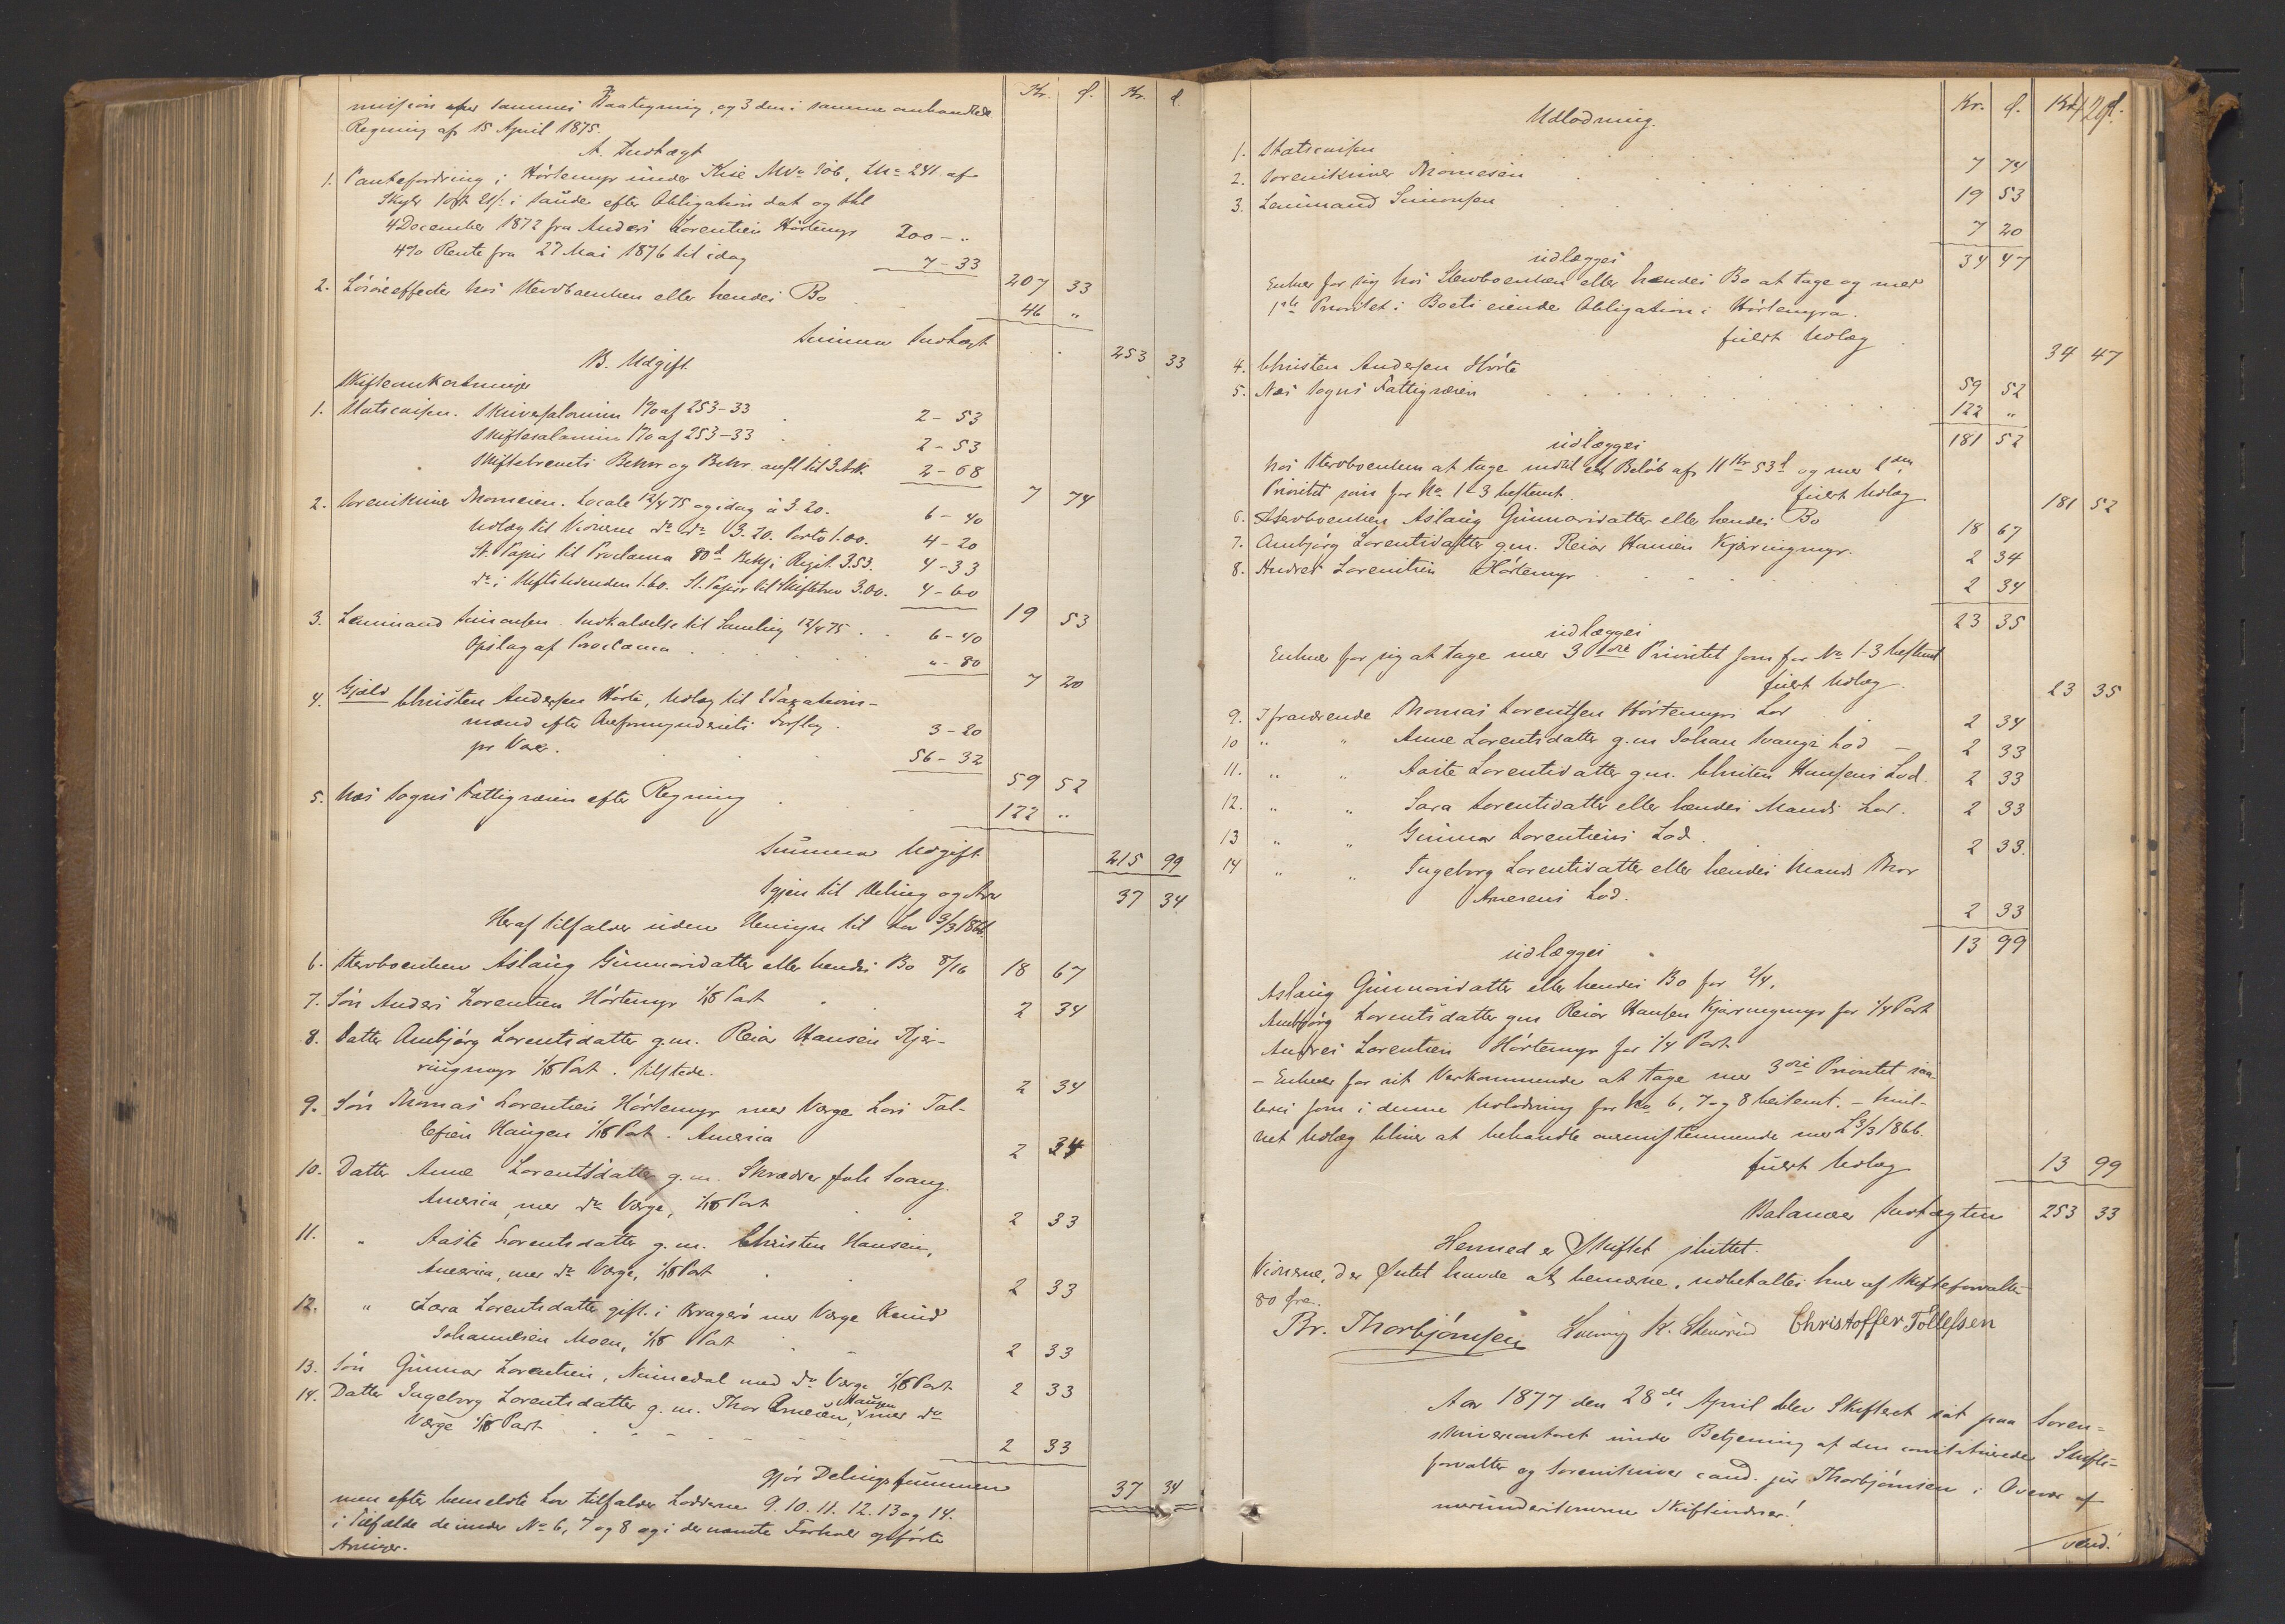 Kr. d. Kr. d.
mission efter sammes Paategning, og 3 den i samme omhandlede
Regning af 15 April 1875.
A. Indtægt
1. Pantefordring i Hörtemyr under Kise MNo 106, LNo 241 af
Skyld i Saude efter Obligation dat og thl
4 December 1872 fra Anders Lorentsen Hörtemyr 200 - "
4% Rente fra 27 Mai 1876 til idag 7 - 33
207 33
2. Lösöreeffecter hos Stervboenken eller hendes Bo 46 "
Summa Indtægt 253 33
B. Udgift
Skifteomkostninger
1. Statscassen. Skriversalarium 1% af 253-33 2 - 53
Skiftesalarium 1% af 253-33 2 - 53
Skiftebrevets Beskr og Beskr. anst til 3 Ark 2 - 68
7 74
2. Sorenskriver Thomesen. Locale 12/4 75 og idag à 3.20. 6 - 40
Udlæg til Vidnerne do do 3.20. Porto 1.00. 4 - 20
St. Papir til Proclama 80d Bekj i Rigst. 3.53. 4 - 33
do i Stiftstidenden 1.60. St. Papir til Skiftebrev 3.00. 4 - 60
19 53
3. Lensmand Simonsen. Indkaldelse til Samling 12/4 75 6 - 40
Opslag af Proclama " - 80
7 20
4. Gjæld Christen Andersen Hörte, Udlæg til 2 Taxations-
mænd efter Overformynderiets Forslag 3 - 20
pr Vare. 56 - 32
59 52
5. Næs Sogns Fattigvæsen efter Regning 122 "
Summa Udgift 215 99
Igjen til Deling og Arv 37 34
Heraf tilfalder uden Hensyn til Lov 9/3 1866.
6. Stervboenken Aslaug Gunnarsdatter eller hendes Bo 8/16 18 67
7. Sön Anders Lorentsen Hörtemyr 1/16 Part 2 34
8. Datter Anbjörg Lorentsdatter g.m. Reiar Hansen Kjer-
ringmyr 1/16 Part. tilstede. 2 34
9. Sön Thomas Lorentsen Hörtemyr med Værge Lars Tal-
lefsen Haugen 1/16 Part. America 2 34
10. Datter Anne Lorentsdatter g.m. Skrædder Joh Svang.
America, med do Værge, 1/16 Part 2 33
11. " Aaste Lorentsdatter g.m. Christen Hansen,
America, med do Værge, 1/16 Part 2 33
12. " Sara Lorentsdatter gift. i Kragerö med Værge Knud
Johannesen Moen, 1/16 Part 2 33
13. Sön Gunnar Lorentsen, Numedal med do Værge 1/16 Part 2 33
14. Datter Ingeborg Lorentsdatter g.m. Thor Arnesen, Haugen med do
Værge 1/16 Part 2 33
gjör Delingssummen 37 34
men efter bemeldte Lov tilfalder Lodderne 9. 10. 11. 12. 13 og 14.
i Tilfælde de under No 6, 7 og 8 og i dernævnte Forhold opförte
Arvinger.
Kr. d. Kr. d.
Udlodning.
1. Statscassen 7 74
2. Sorenskriver Thomesen 19 53
3. Lensmand Simonsen 7 20
34 47
udlægges
Enhver for sig hos Stervboenken eller hendes Bo at tage og med
1ste Prioritet i Boets eiende Obligation i Hörtemyra.
fuldt Udlæg 34 47
4. Christen Andersen Hörte 59 52
5. Næs Sogns Fattigvæsen 122 "
181 52
udlægges
hos Stervboenken at tage indtil et Beløb af 11 Kr 53 d og med 2den
Prioritet som for No 1-3 bestemt.
fuldt Udlæg 181 52
6. Stervboenken Aslaug Gunnarsdatter eller hendes Bo 18 67
7. Ambjörg Lorentsdatter g.m. Reiar Hansen Kjæringmyr. 2 34
8. Anders Lorentsen Hörtemyr 2 34
23 35
udlægges
Enhver for sig at tage med 3die Prioritet som for No 1-3 bestemt
fuldt Udlæg 23 35
9. Ifraværende Thomas Lorentsen Hörtemyrs Lod 2 34
10 " " Anne Lorentsdatter g.m Johan Svangs Lod 2 33
11. " " Aaste Lorentsdatter g.m. Christen Hansens Lod. 2 33
12. " " Sara Lorentsdatter eller hendes Mands Lod. 2 33
13 " " Gunnar Lorentsens Lod. 2 33.
14 " " Ingeborg Lorentsdatter eller hendes Mands Thor
Arnesens Lod. 2 33
13 99
udlægges
Aslaug Gunnarsdatter eller hendes Bo for 2/4.
Ambjörg Lorentsdatter gm Reiar Hansen Kjæringmyr for 1/4 Part
Anders Lorentsen Hörtemyr for 1/4 Part
- Enhver for sit Vedkommende at tage med 3die Prioritet saa-
ledes som i denne Udlodning for No 6, 7 og 8 bestemt. - hvil-
ket Udlæg bliver at behandle overensstemmende med L 9/3 1866.
fuldt Udlæg 13 99
Balancer Indtægten 253 33
Hermed er Skiftet sluttet.
Vidnerne, der Intet havde at bemærke, udbetaltes hver af Skifteforvalteren
80 Øre.
Br. Thorbjörnsen Christoffer Tollefsen
Aar 1877 den 28de April blev Skifteret sat paa Soren-
skrivercontoret under Betjening af den constituerede Skifte-
forvalter og Sorenskriver cand. jur Thorbjörnsen i Overvær af
medunderskrevne Skiftevidner!
vend.